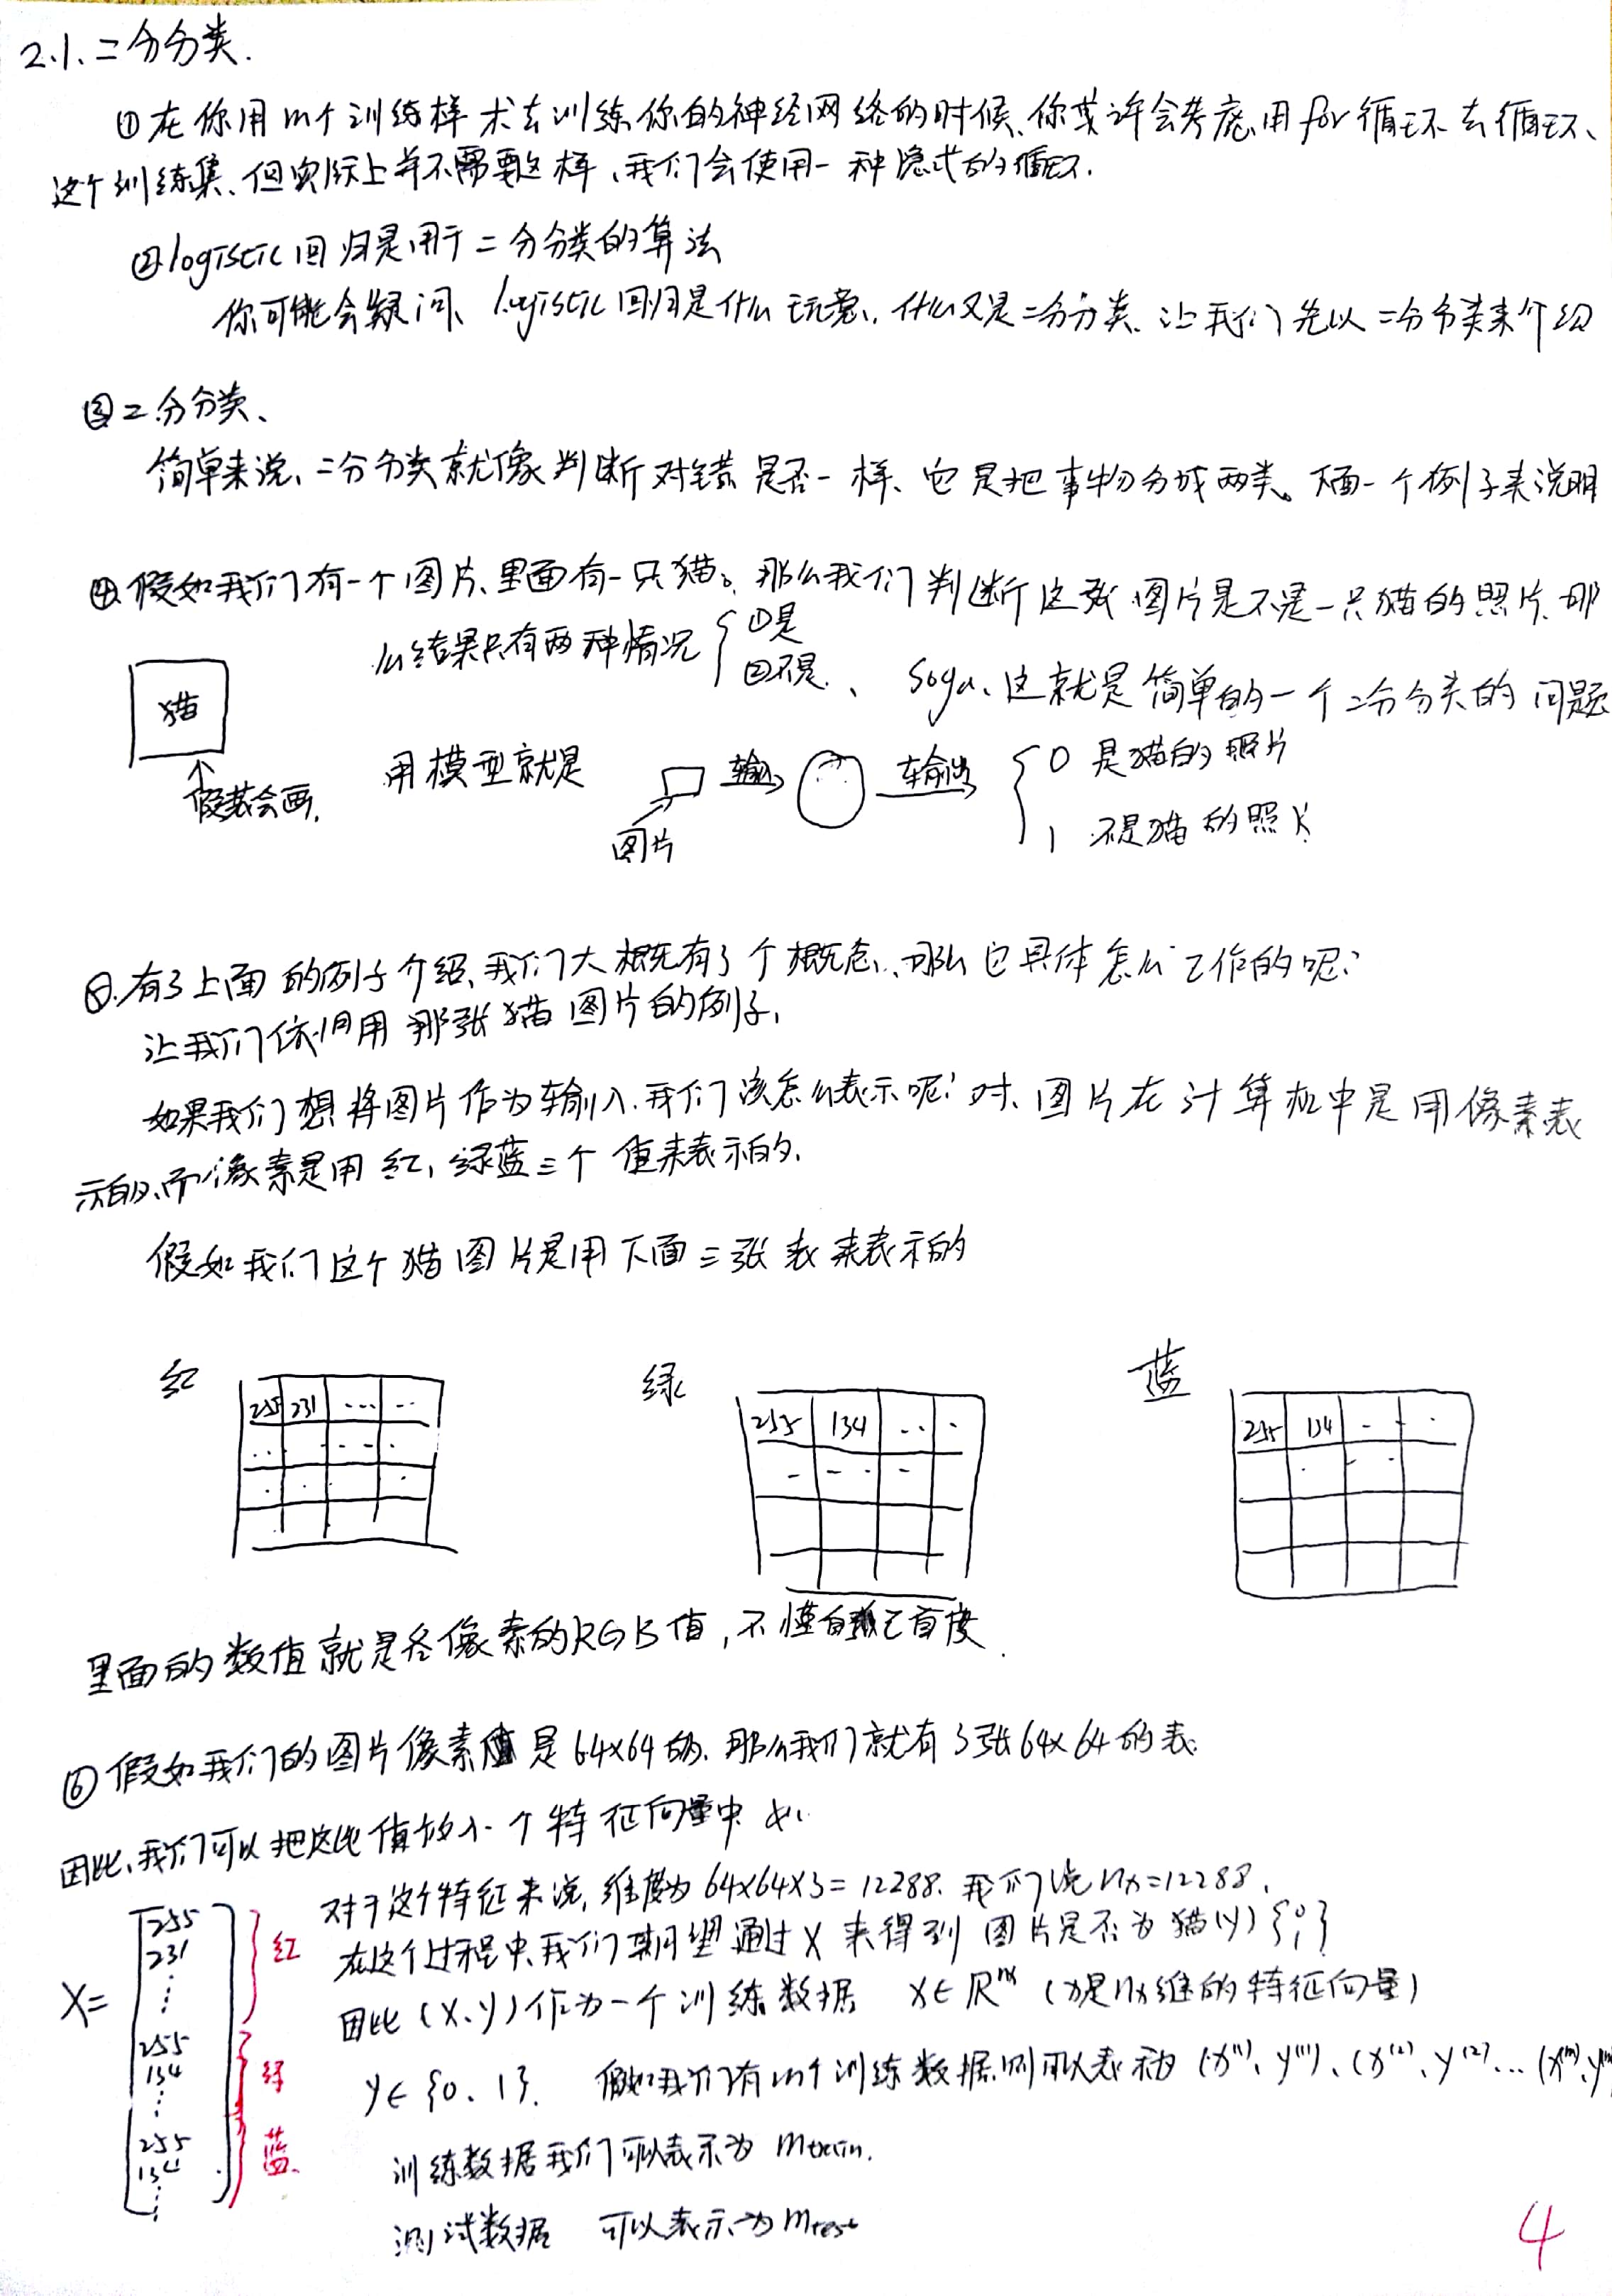 2.1.二分分类.
①在你用m个训练样术去训练你的神经网络的时候、你或许会考虑用for循环去循环、
这个训练集、但实际上并不需要这样、我们会使用一种隐式的循环.
②logistic回归是用于二分分类的算法
你可能会疑问、logistic回归是什么玩意、什么又是二分分类、让我们先以二分分类来介绍
③二分分类、
简单来说、二分分类就像判断对错是否一样、它是把事物分成两类。下面一个例子来说明
④假如我们有一个图片、里面有一只猫。那么我们判断这张图片是不是一只猫的照片、那
么结果只有两种情况 ①是
②不是、
Soga、这就是简单的一个二分分类的问题
猫
假装会画.
用模型就是
图片
输入
输出
0 是猫的照片
1 不是猫的照片
⑤.有了上面的例子介绍、我们大概有了个概念、那么它具体怎么工作的呢?
让我们依旧用那张猫图片的例子,
如果我们想将图片作为输入、我们该怎么表示呢?对、图片在计算机中是用像素表
示的、而像素是用红,绿蓝三个值来表示的.
假如我们这个猫图片是用下面三张表来表示的
红
255 231 ... ..
绿
255 134 .. .
蓝
255 134 - - .
里面的数值就是各像素的RGB值,不懂自己百度.
⑥假如我们的图片像素值是64×64的.那么我们就有3张64×64的表
因此、我们可以把这些值放入一个特征向量中x.
X=
255
231
⋮
255
134
⋮
255
134
⋮
红
绿
蓝
对于这个特征来说,维度为64×64×3=12288.我们说nx=12288.
在这个过程中、我们期望通过X来得到图片是否为猫(y){0,1}
因此(X、y)作为一个训练数据 x∈R^nx (x是nx维的特征向量)
y∈{0、1}. 假如我们有m个训练数据、则可以表示为(x⁽¹⁾、y⁽¹⁾)、(x⁽²⁾、y⁽²⁾...(x⁽ᵐ⁾、y⁽ᵐ
训练数据我们可以表示为mtrain.
测试数据 可以表示为mtest
4